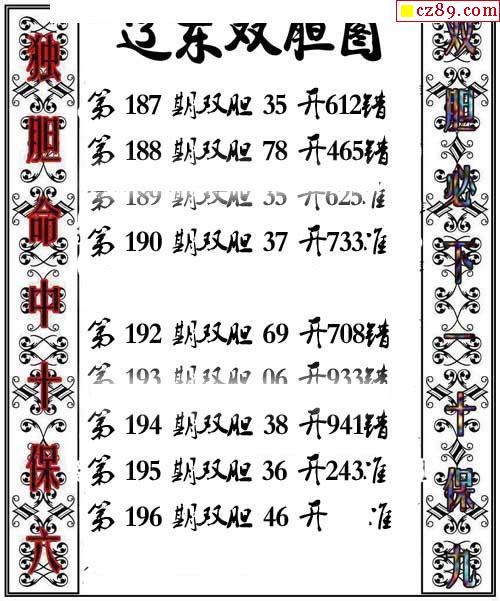 cz89.com
辽东双胆图
独胆命中十保六
第 187 期双胆 35 开612错
第 188 期双胆 78 开465错
第 189 期双胆 35 开625准
第 190 期双胆 37 开733准
第 192 期双胆 69 开708错
第 193 期双胆 06 开933错
第 194 期双胆 38 开941错
第 195 期双胆 36 开243准
第 196 期双胆 46 开 准
双胆必下一十保九